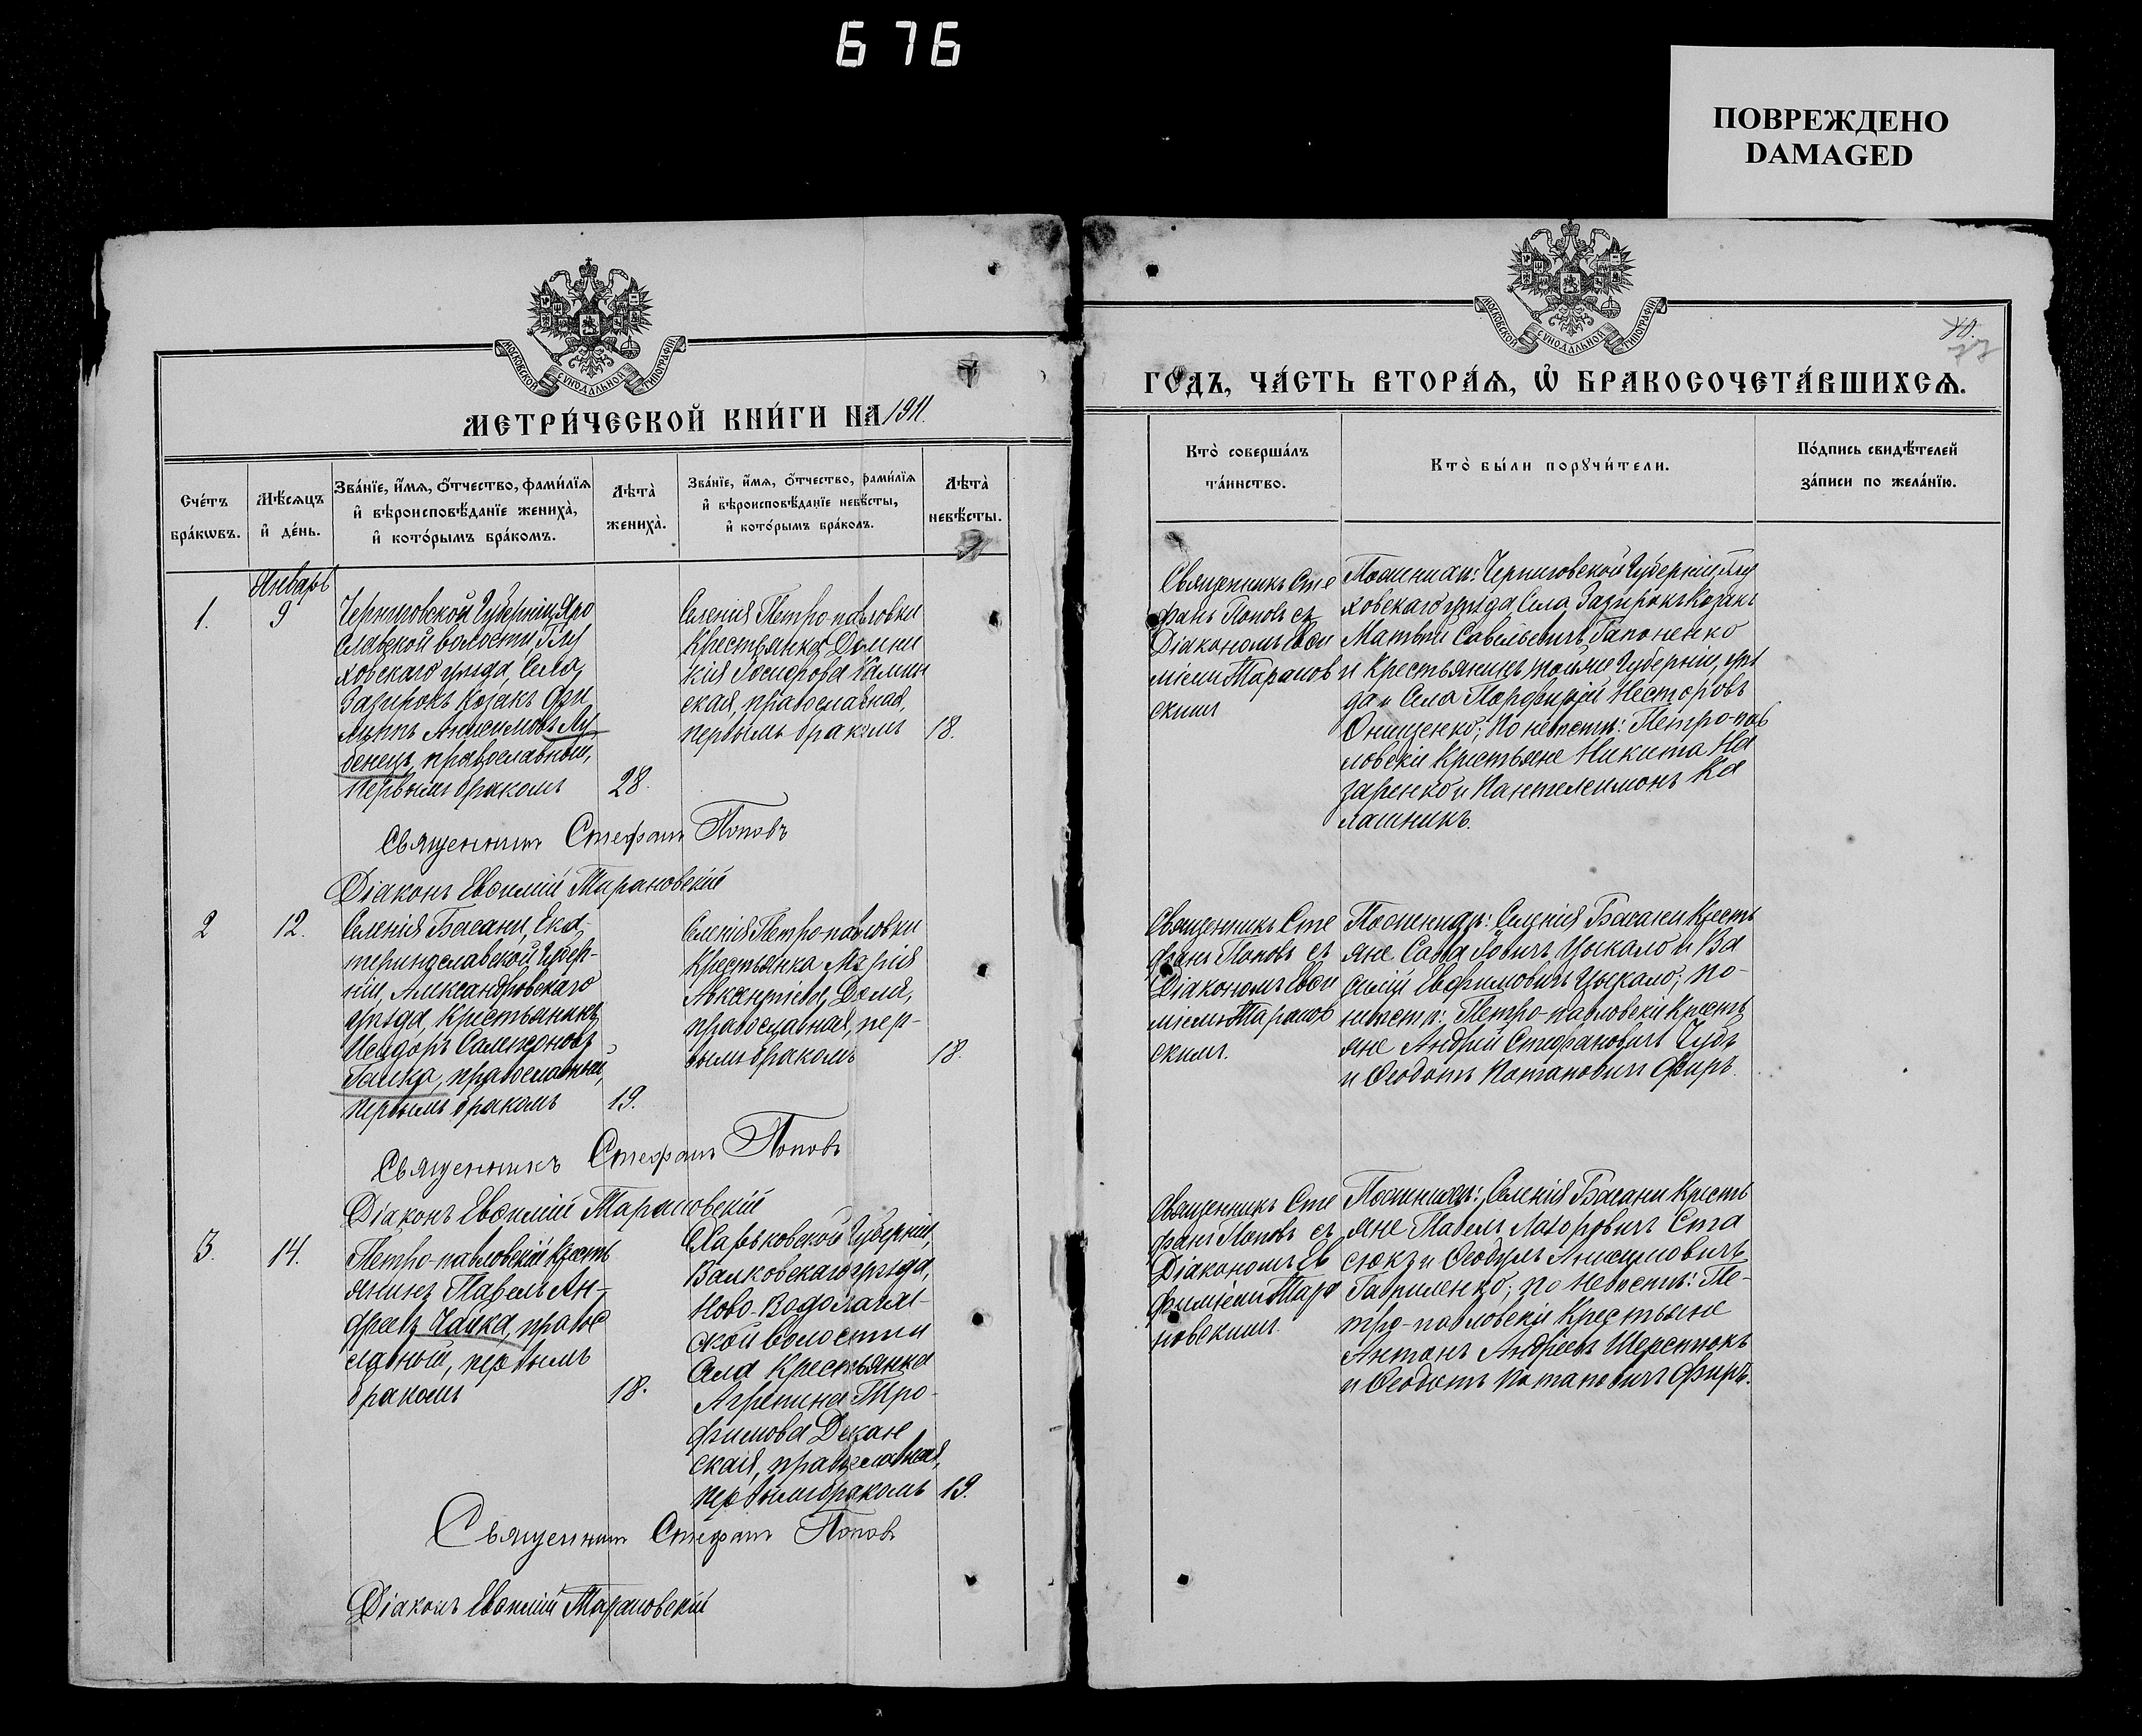 676
ПОВРЕЖДЕНО
DAMAGED
МОСКОВСКОЙ СУНОДАЛЬНОЙ ТИПОГРАФІИ
МЕТРИ́ЧЕСКОЙ КНИ́ГИ НА 1911.
Сче́тъ бра́кѡвъ.
Мѣ́сяцъ и҆ де́нь.
Зва́нїе, и҆́мя, ѻ҆́тчество, фами́лїя и҆ вѣроисповѣ́данїе жениха̀, и҆ кото́рымъ бра́комъ.
Лѣта̀ жениха̀.
Зва́нїе, и҆́мя, ѻ҆́тчество, фами́лїя и҆ вѣроисповѣ́данїе невѣ́сты, и҆ кото́рымъ бра́комъ.
Лѣта̀ невѣ́сты.
Январь
1.
9
Черниговской Губерніи, Яро
славской волости, Глу
ховскаго уѣзда, Села,
Зазирокъ Козакъ Фи
липпъ Анисимовъ Лу
бенецъ, православный,
первымъ бракомъ
28.
Селенія Петро-павловки
Крестьянка Домни
кія Іосифова Калин
ская, православная,
первымъ бракомъ
18.
Священникъ Стефанъ Поповъ
Діаконъ Евѳимій Тарановскій
2
12.
Селенія Басани, Ека-
теринославской Губер-
ніи, Александровскаго
уѣзда, Крестьянинъ
Исидоръ Сампсоновъ
православный,
первымъ бракомъ
19.
Селенія Петро-павловки
Крестьянка Марія
Авксентіева, Доля,
православная, пер-
вымъ бракомъ
18.
Священникъ Стефанъ Поповъ
Діаконъ Евѳимій Тарановскій
3.
14.
Петро-павловскій Кресть
янинъ Павелъ Ан-
дреевъ Чайка, право
славный, первымъ
бракомъ
18.
Харьковской Губерніи,
Валковскаго уѣзда,
Ново-Водолажс-
ской волости
Села Крестьянка
Агрепина Тро-
фимова
ская, православная,
первымъ бракомъ
19.
Священникъ Стефанъ Поповъ
Діаконъ Евѳимій Тарановскій
МОСКОВСКОЙ СУНОДАЛЬНОЙ ТИПОГРАФІИ
77
ГО́ДЪ, ЧА́СТЬ ВТОРА́Я, Ѡ҆ БРАКОСОЧЕТА́ВШИХСЯ.
Кто̀ соверша́лъ та́инство.
Кто̀ бы́ли порꙋчи́тели.
По́дпись свидѣ́телей за́писи по жела́нїю.
Священникъ Сте
фанъ Поповъ съ
Діакономъ Евѳи
міемъ Таранов
скимъ
По женихѣ: Черниговской Губерніи, Глу
ховскаго уѣзда Села Зазирокъ Козакъ
Матвѣй Савельевичъ Гапоненко
и Крестьянинъ той же Губерніи, уѣз
да и Села Порфирій Несторовъ
Онищенко; По невѣстѣ: Петро-пав
ловскіе Крестьяне Никита На
заренко и Пантелеимонъ Ка
лашникъ.
Священникъ Сте
фанъ Поповъ съ
Діакономъ Евѳи
міемъ Таранов
скимъ.
По женихѣ: Селенія Басани Кресть
яне Сава Іовичъ Цыкало и Ва
силій Евфимовичъ Цыкало; По-
невѣстѣ: Петро-павловскіе Кресть
яне Андрей Стефановичъ Чубъ
и Ѳеодотъ Потаповичъ Фиръ.
Священникъ Сте
фанъ Поповъ съ
Діакономъ Ев
фиміемъ Тара
новскимъ.
По женихѣ: Селенія Басани Кресть
яне Павелъ Ста
сюкъ и Ѳеодулъ Анисимовичъ
Гавриленко; по невѣстѣ: Пе-
тро-павловскіе Крестьяне
Антонъ Андреевъ Шерстюкъ
и Ѳеодотъ Потаповичъ Фиръ.